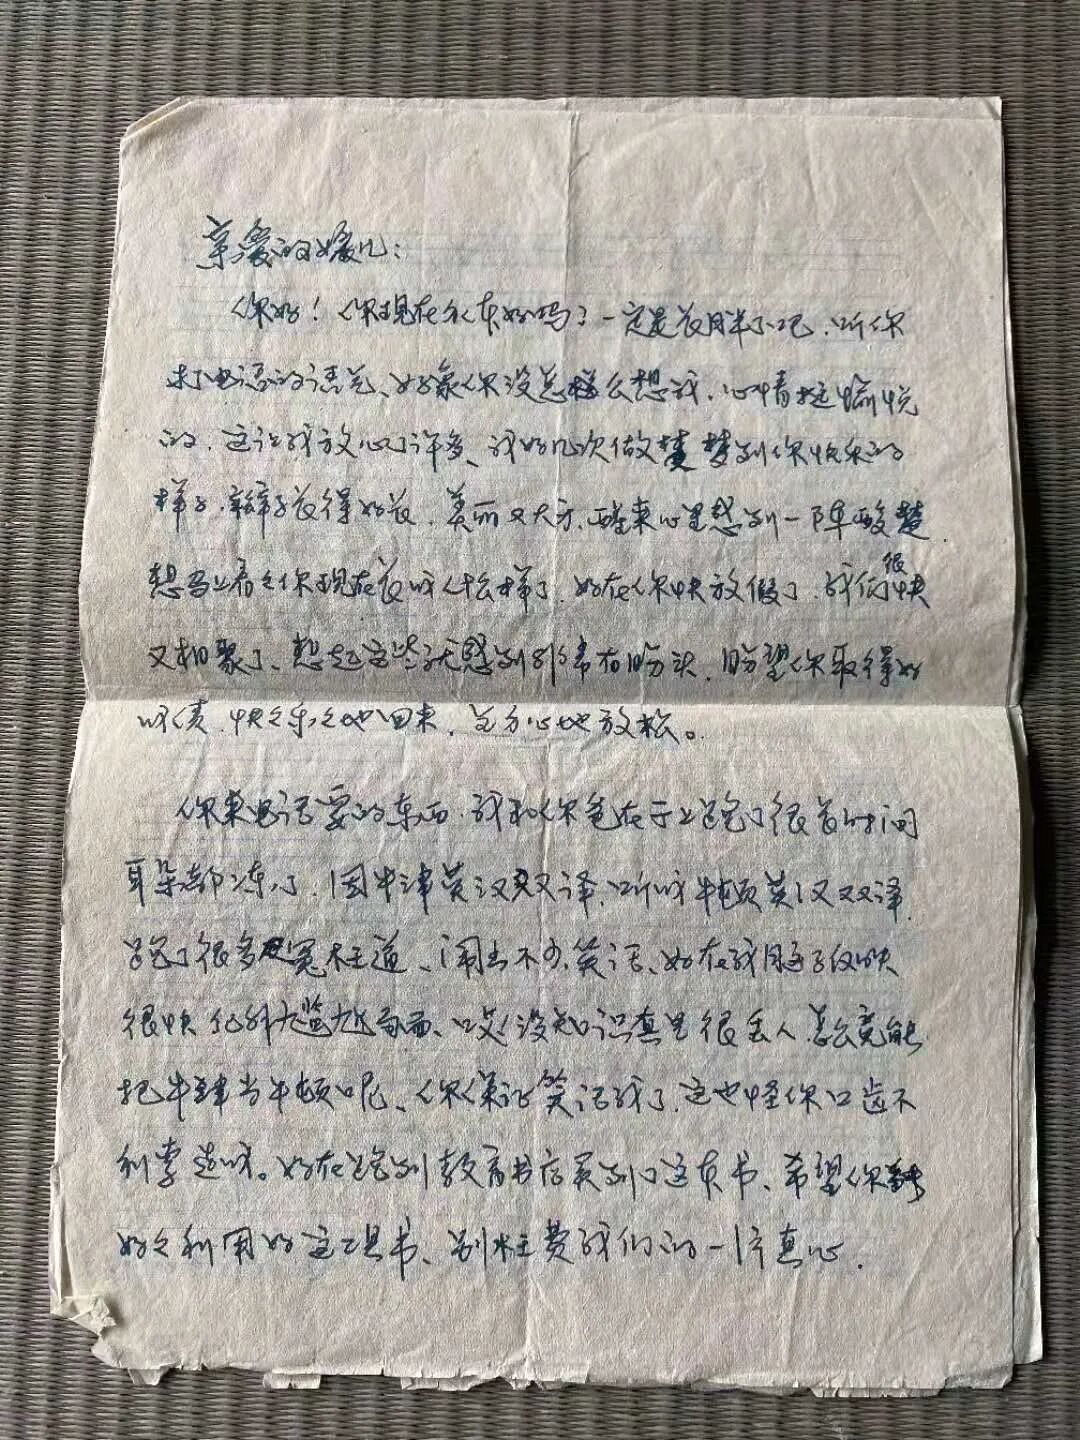 亲爱的媛儿：
你好！你现在保东好吗？一定是长胖了吧，听你
打电话的语气、好象你没怎样么想我，心情挺愉悦
的，这让我放心了许多、我好几次做梦梦到你快乐的
样子，辫子长得好长，美丽又大方，醒来心里感到一阵酸楚，
想马上看看你现在长成什么样了，好在你快放假了，我们很快
又相聚了、想起这些就感到非常有盼头，盼望你取得好
成绩，快快乐乐地回来，全方心地放松。
你来电话要的东西，我和你爸在于上跑了很长时间
耳朵都冻了，因牛津英汉双译，听成牛顿英汉双译，
跑了很多冤枉道、闹出不少笑话、好在我脑子反映
很快化解尴尬局面、唉没知识真是很丢人，怎么竟能
把牛津当牛顿呢、你保证笑话我了，这也怪你口齿不
利索造成。好在跑到教育书店买到了这本书、希望你能
好好利用好这工具书、别枉费我们的一片真心．